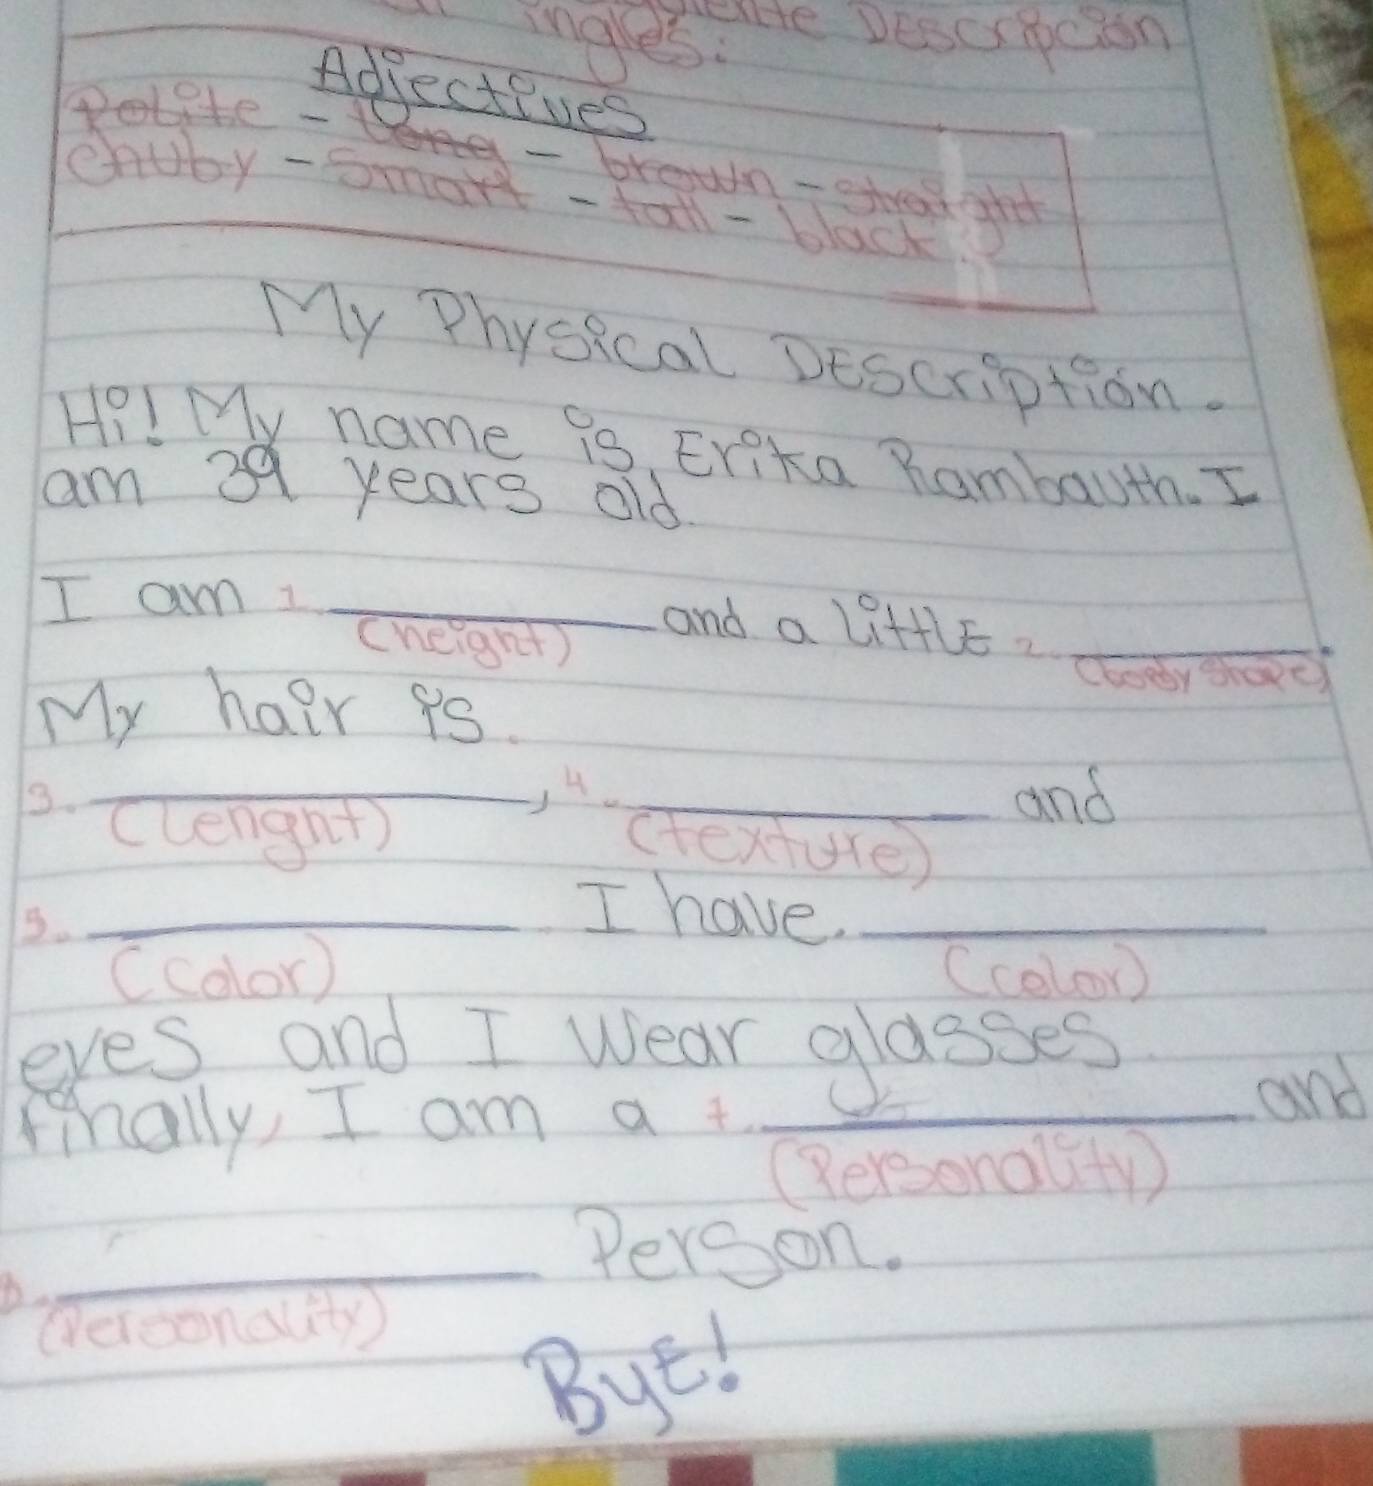 ingles: Descripción
Adjectives
Polite - Long - brown - straight
Chuby - Smart - tall - black
My Physical Description.
Hi! My name is Erika Rambauth. I
am 39 years old.
I am 1. ________ and a little 2. ________.
(height) (body shape)
My hair is.
3. ________, 4. ________ and
(Lenght) (texture)
5. ________. I have. ________
(Color) (color)
eyes and I wear glasses.
finally, I am a 7. ________ and
(Personality)
8. ________ Person.
(Personality)
Bye!